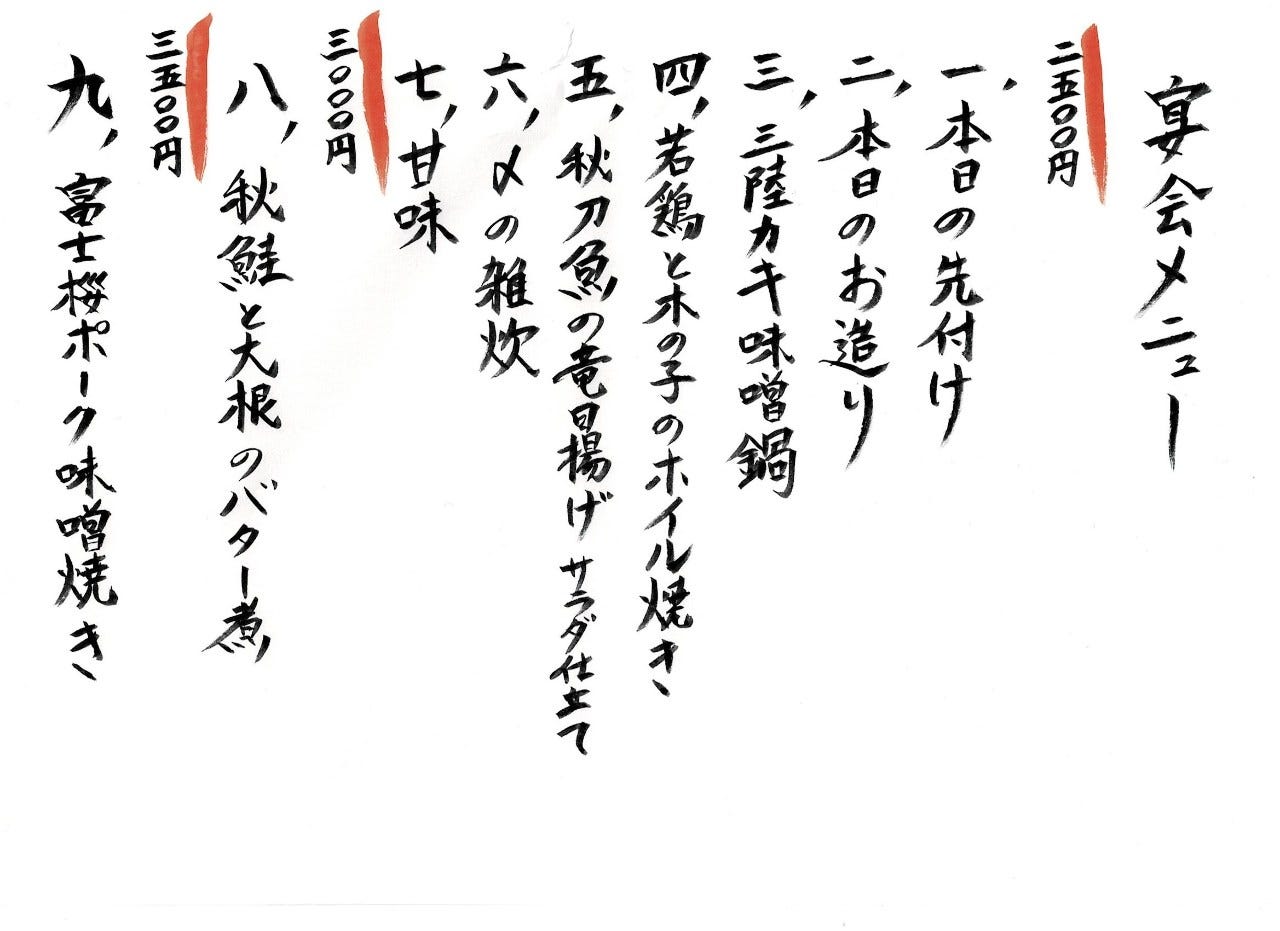 宴会メニュー
二五〇〇円
一、本日の先付け
二、本日のお造り
三、三陸カキ味噌鍋
四、若鶏と木の子のホイル焼き
五、秋刀魚の竜田揚げ サラダ仕立て
六、〆の雑炊
七、甘味
三〇〇〇円
八、秋鮭と大根のバター煮
三五〇〇円
九、富士桜ポーク味噌焼き